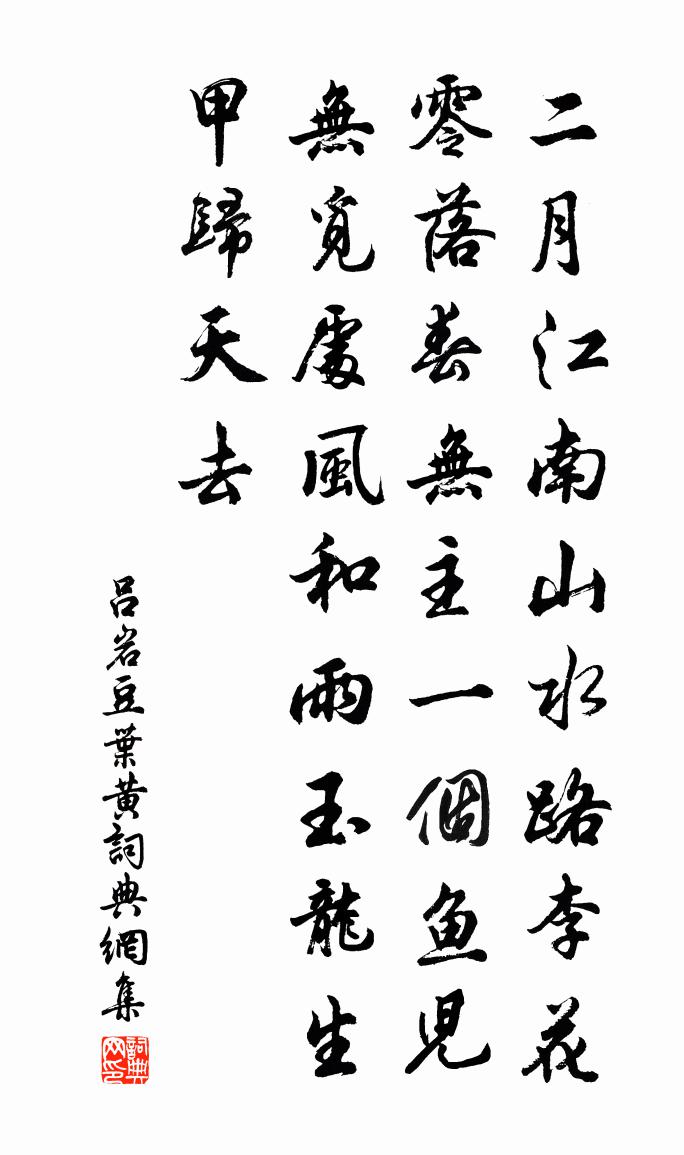 二月江南山水路李花
零落春無主一個鱼児
無覓處風和雨玉龍生
甲歸天去
吕岩豆葉黄詞典網集
詞典网印